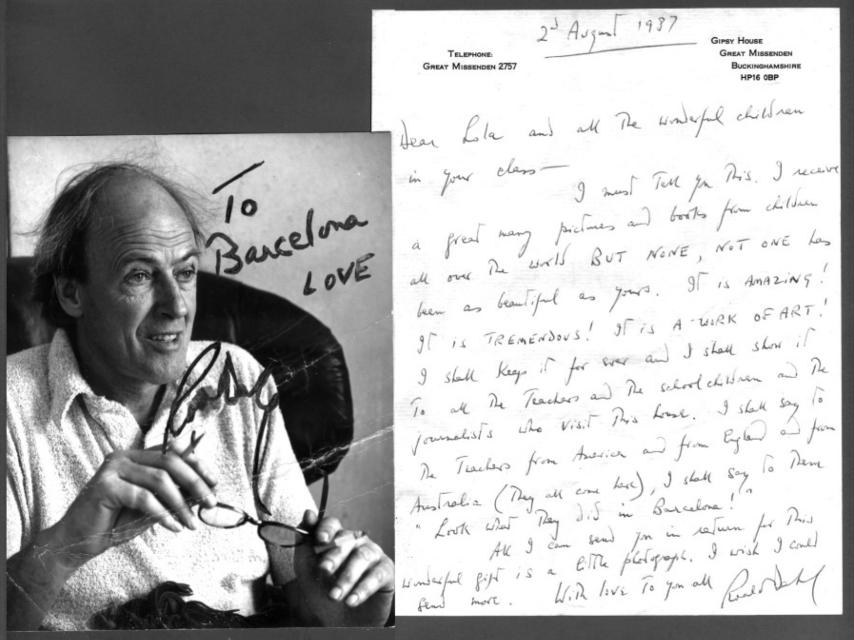 To
Barcelona
LOVE
2d August 1987
TELEPHONE:
GREAT MISSENDEN 2757
GIPSY HOUSE
GREAT MISSENDEN
BUCKINGHAMSHIRE
HP16 0BP
Dear Lola and all the wonderful children
in your class—
I must tell you this. I receive
a great many pictures and books from children
all over the world BUT NONE, NOT ONE has
been as beautiful as yours. It is AMAZING!
It is TREMENDOUS! It is A WORK OF ART!
I shall keep it for ever and I shall show it
to all the teachers and the schoolchildren and the
journalists who visit this house. I shall say to
the teachers from America and from England and from
Australia (they all come here), I shall say to them
"Look what they did in Barcelona!"
All I can send you in return for this
wonderful gift is a little photograph. I wish I could
send more. With love to you all
Roald Dahl